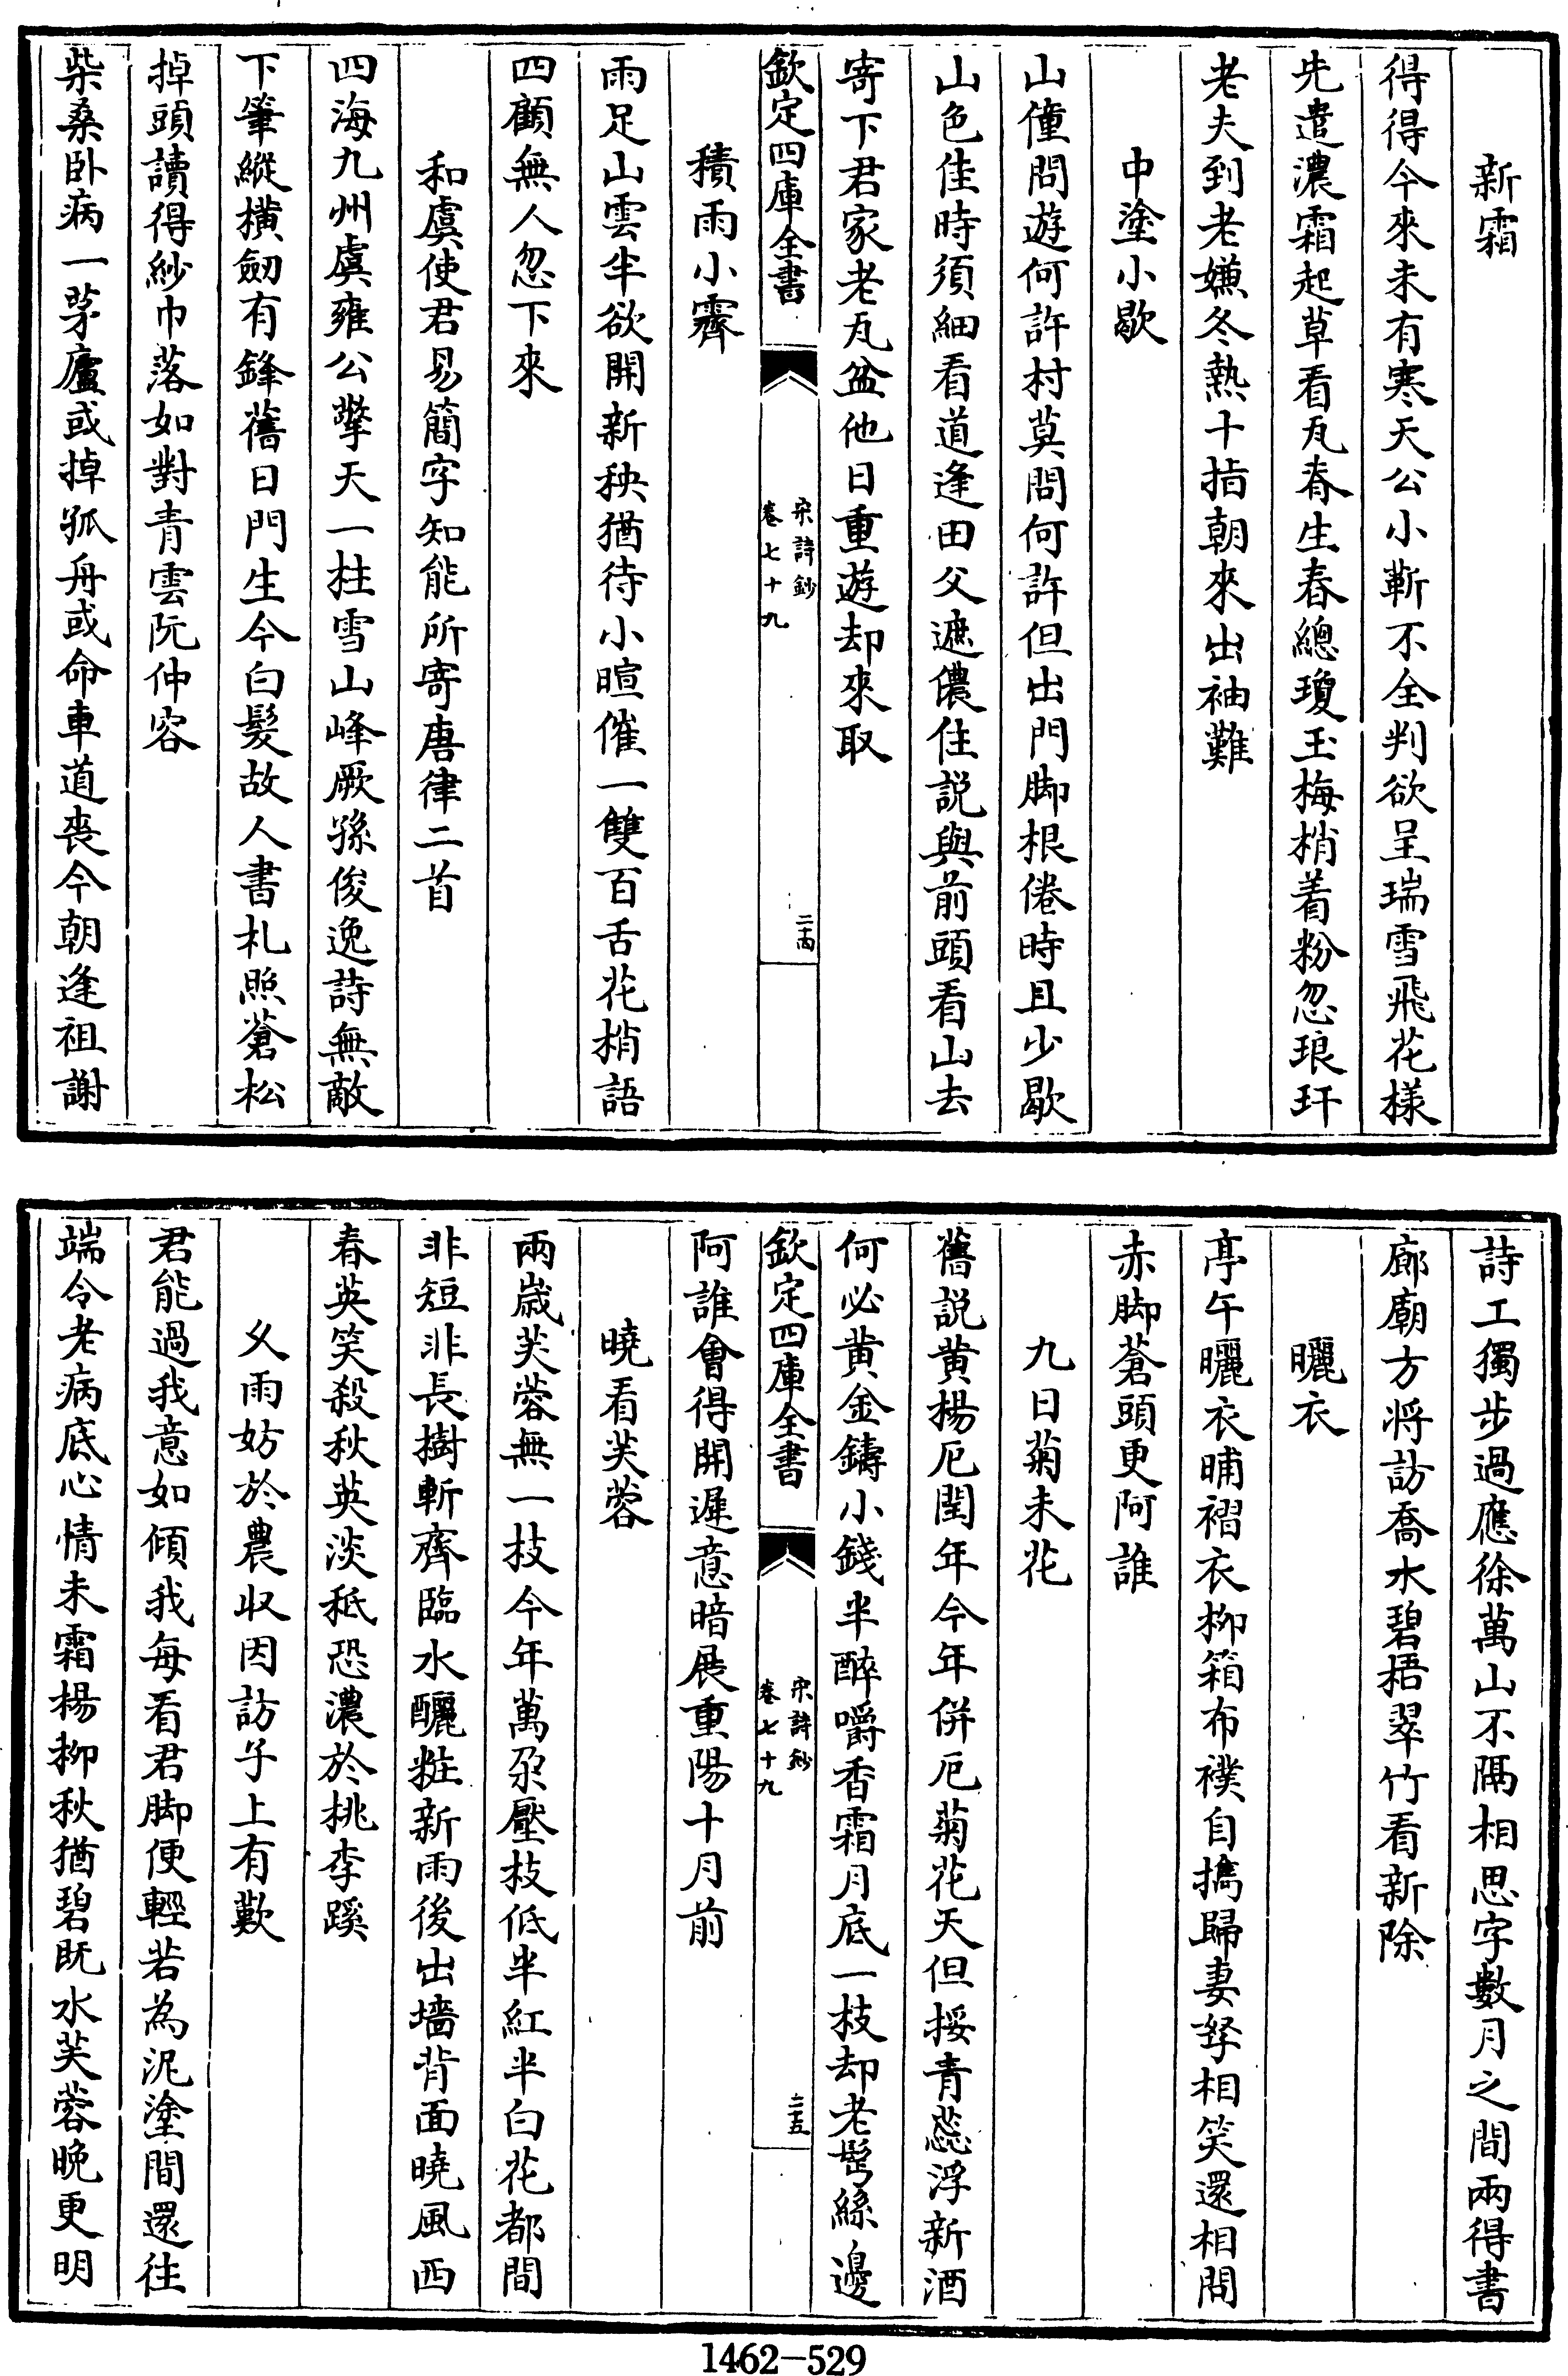 新霜
得得今來未有寒天公小靳不全判欲呈瑞雪飛花樣
先遣濃霜起草看瓦脊生春總瓊玉梅梢着粉忽琅玕
老夫到老嫌冬熱十指朝來出袖難
中塗小歇
山僮問遊何許村莫問何許但出門脚根倦時且少歇
山色佳時須細看道逢田父遮儂住説與前頭看山去
寄下君家老瓦盆他日重遊却來取
欽定四庫全書
宋詩鈔
卷七十九
二十四
積雨小霽
雨足山雲半欲開新秧猶待小暄催一雙百舌花梢語
四顧無人忽下來
和虞使君易簡字知能所寄唐律二首
四海九州虞雍公擎天一柱雪山峰厥孫俊逸詩無敵
下筆縱橫劒有鋒舊日門生今白髮故人書札照蒼松
掉頭讀得紗巾落如對青雲阮仲容
柴桑卧病一茅廬或掉孤舟或命車道喪今朝逢祖謝
詩工獨步過應徐萬山不隔相思字數月之間兩得書
廊廟方将訪喬木碧梧翠竹看新除
曬衣
亭午曬衣晡褶衣柳箱布襆自擕歸妻孥相笑還相問
赤脚蒼頭更阿誰
九日菊未花
舊説黄楊厄閏年今年併厄菊花天但挼青蕊浮新酒
何必黄金鑄小錢半醉嚼香霜月底一枝却老鬂絲邊
欽定四庫全書
宋詩鈔
卷七十九
二十五
阿誰會得開遲意暗展重陽十月前
曉看芙蓉
兩歳芙蓉無一枝今年萬朶壓枝低半紅半白花都間
非短非長樹斬齊臨水釃粧新雨後出墻背面曉風西
春英笑殺秋英淡秪恐濃於桃李蹊
乂雨妨於農収因訪子上有歎
君能過我意如傾我每看君脚便輕若為泥塗間還往
端令老病底心情未霜楊柳秋猶碧既水芙蓉晚更明
1462-529